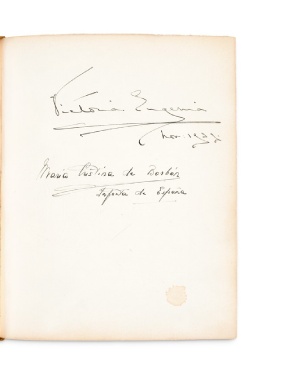 Victoria Eugenia
Nov. 1939.
Maria Cristina de Borbón
Infanta de España